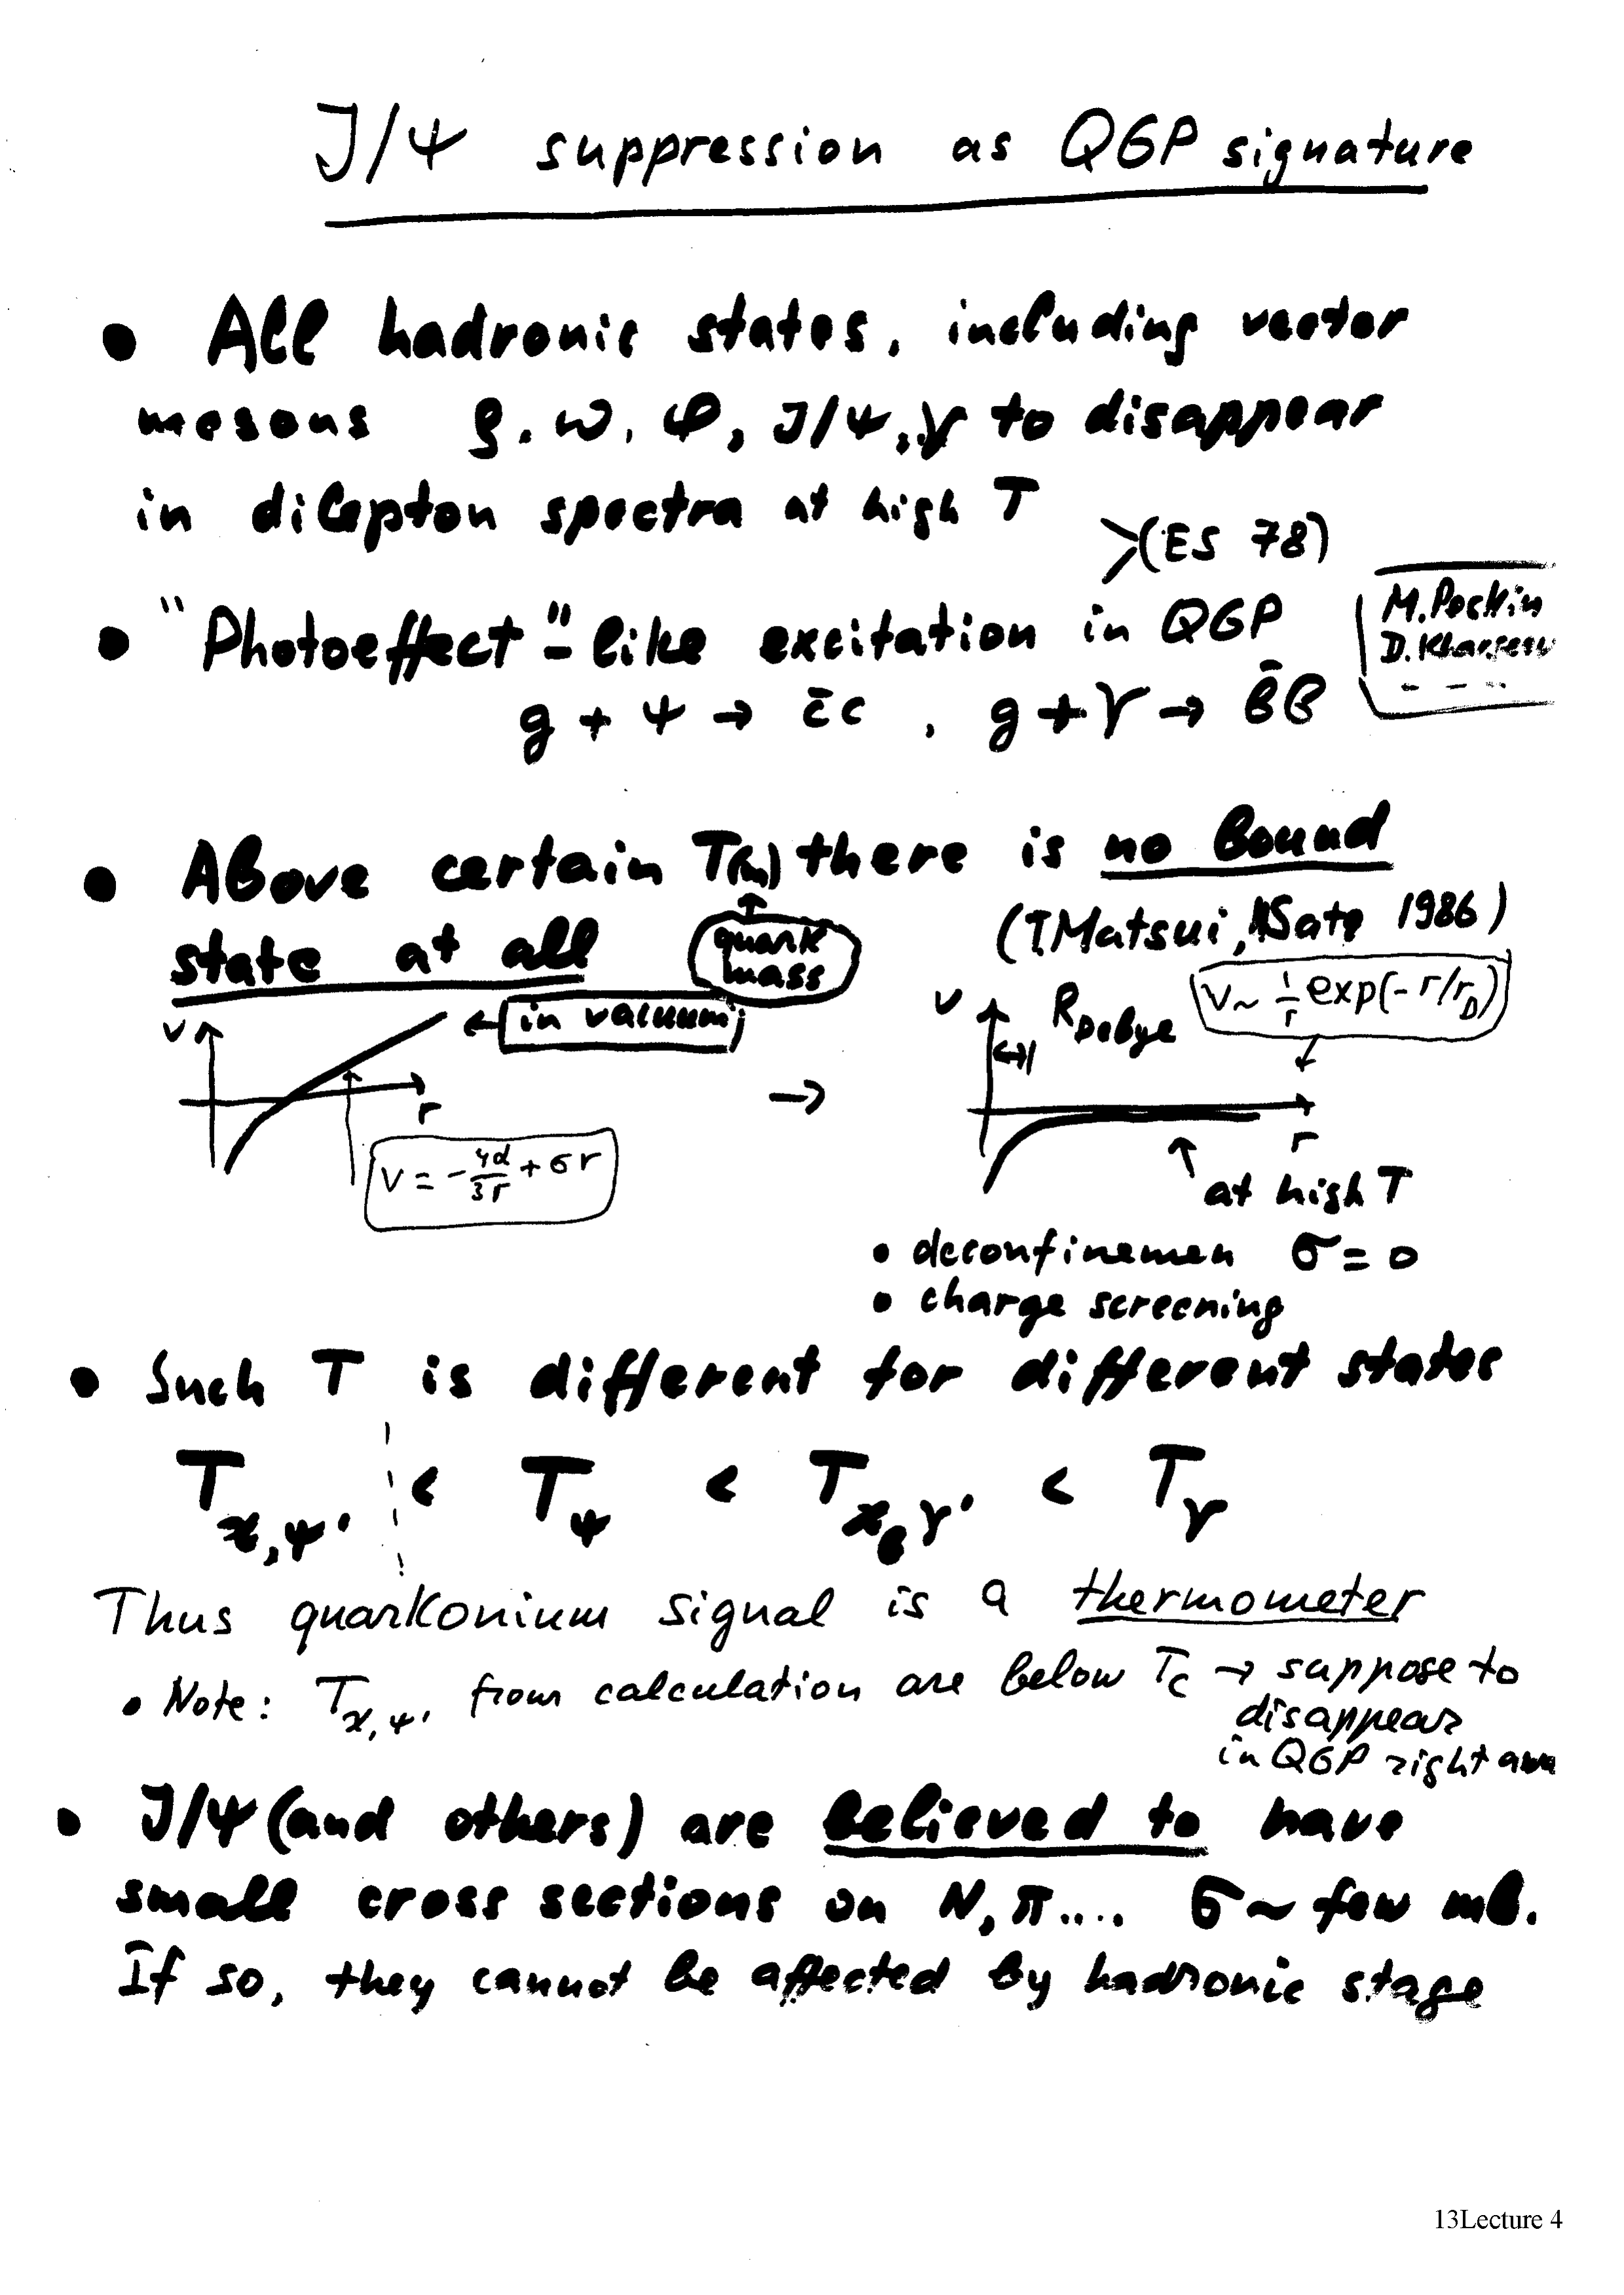 J/ψ suppression as QGP signature
• All hadronic states, including vector
mesons ρ, ω, φ, J/ψ, ϒ to disappear
in dilepton spectra at high T
(ES 78)
• "Photoeffect"-like excitation in QGP
M. Peskin
D. Kharzeev
- - -
g + ψ → c̄c , g + ϒ → b̄b
• Above certain T(m) there is no bound
state at all
quark
mass
(T. Matsui, Satz 1986)
V
← in vacuum
r
V = -4α/3r + σr
→
V
R Debye
V ~ 1/r exp(-r/r_D)
r
at high T
• deconfinemen σ = 0
• charge screening
• Such T is different for different states
T_χ,ψ' < T_ψ < T_χb ϒ' < T_ϒ
Thus quarkonium signal is a thermometer
• Note: T_χ,ψ' from calculation are below T_c → suppose to
disappear
in QGP right
• J/ψ (and others) are believed to have
small cross sections on N, π.... σ ~ few mb.
If so, they cannot be affected by hadronic stage
13Lecture 4